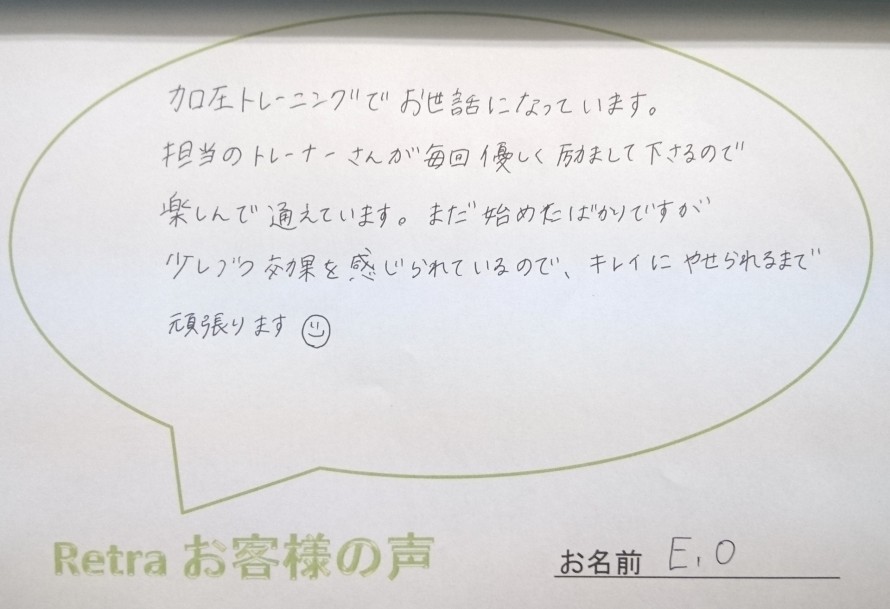 加圧トレーニングでお世話になっています。
担当のトレーナーさんが毎回優しく励まして下さるので
楽しんで通えています。まだ始めたばかりですが
少しづつ効果を感じられているので、キレイにやせられるまで
頑張ります☺
Retra お客様の声
お名前 E.O